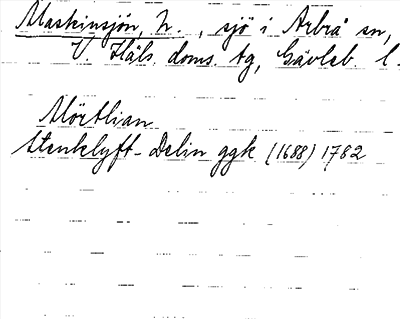 Maskinsjön, N., sjö i Arbrå sn,
V. Häls. doms. tg, Gävleb. l.
Mörtlian
Stenklyft- Delin ggk (1688) 1782